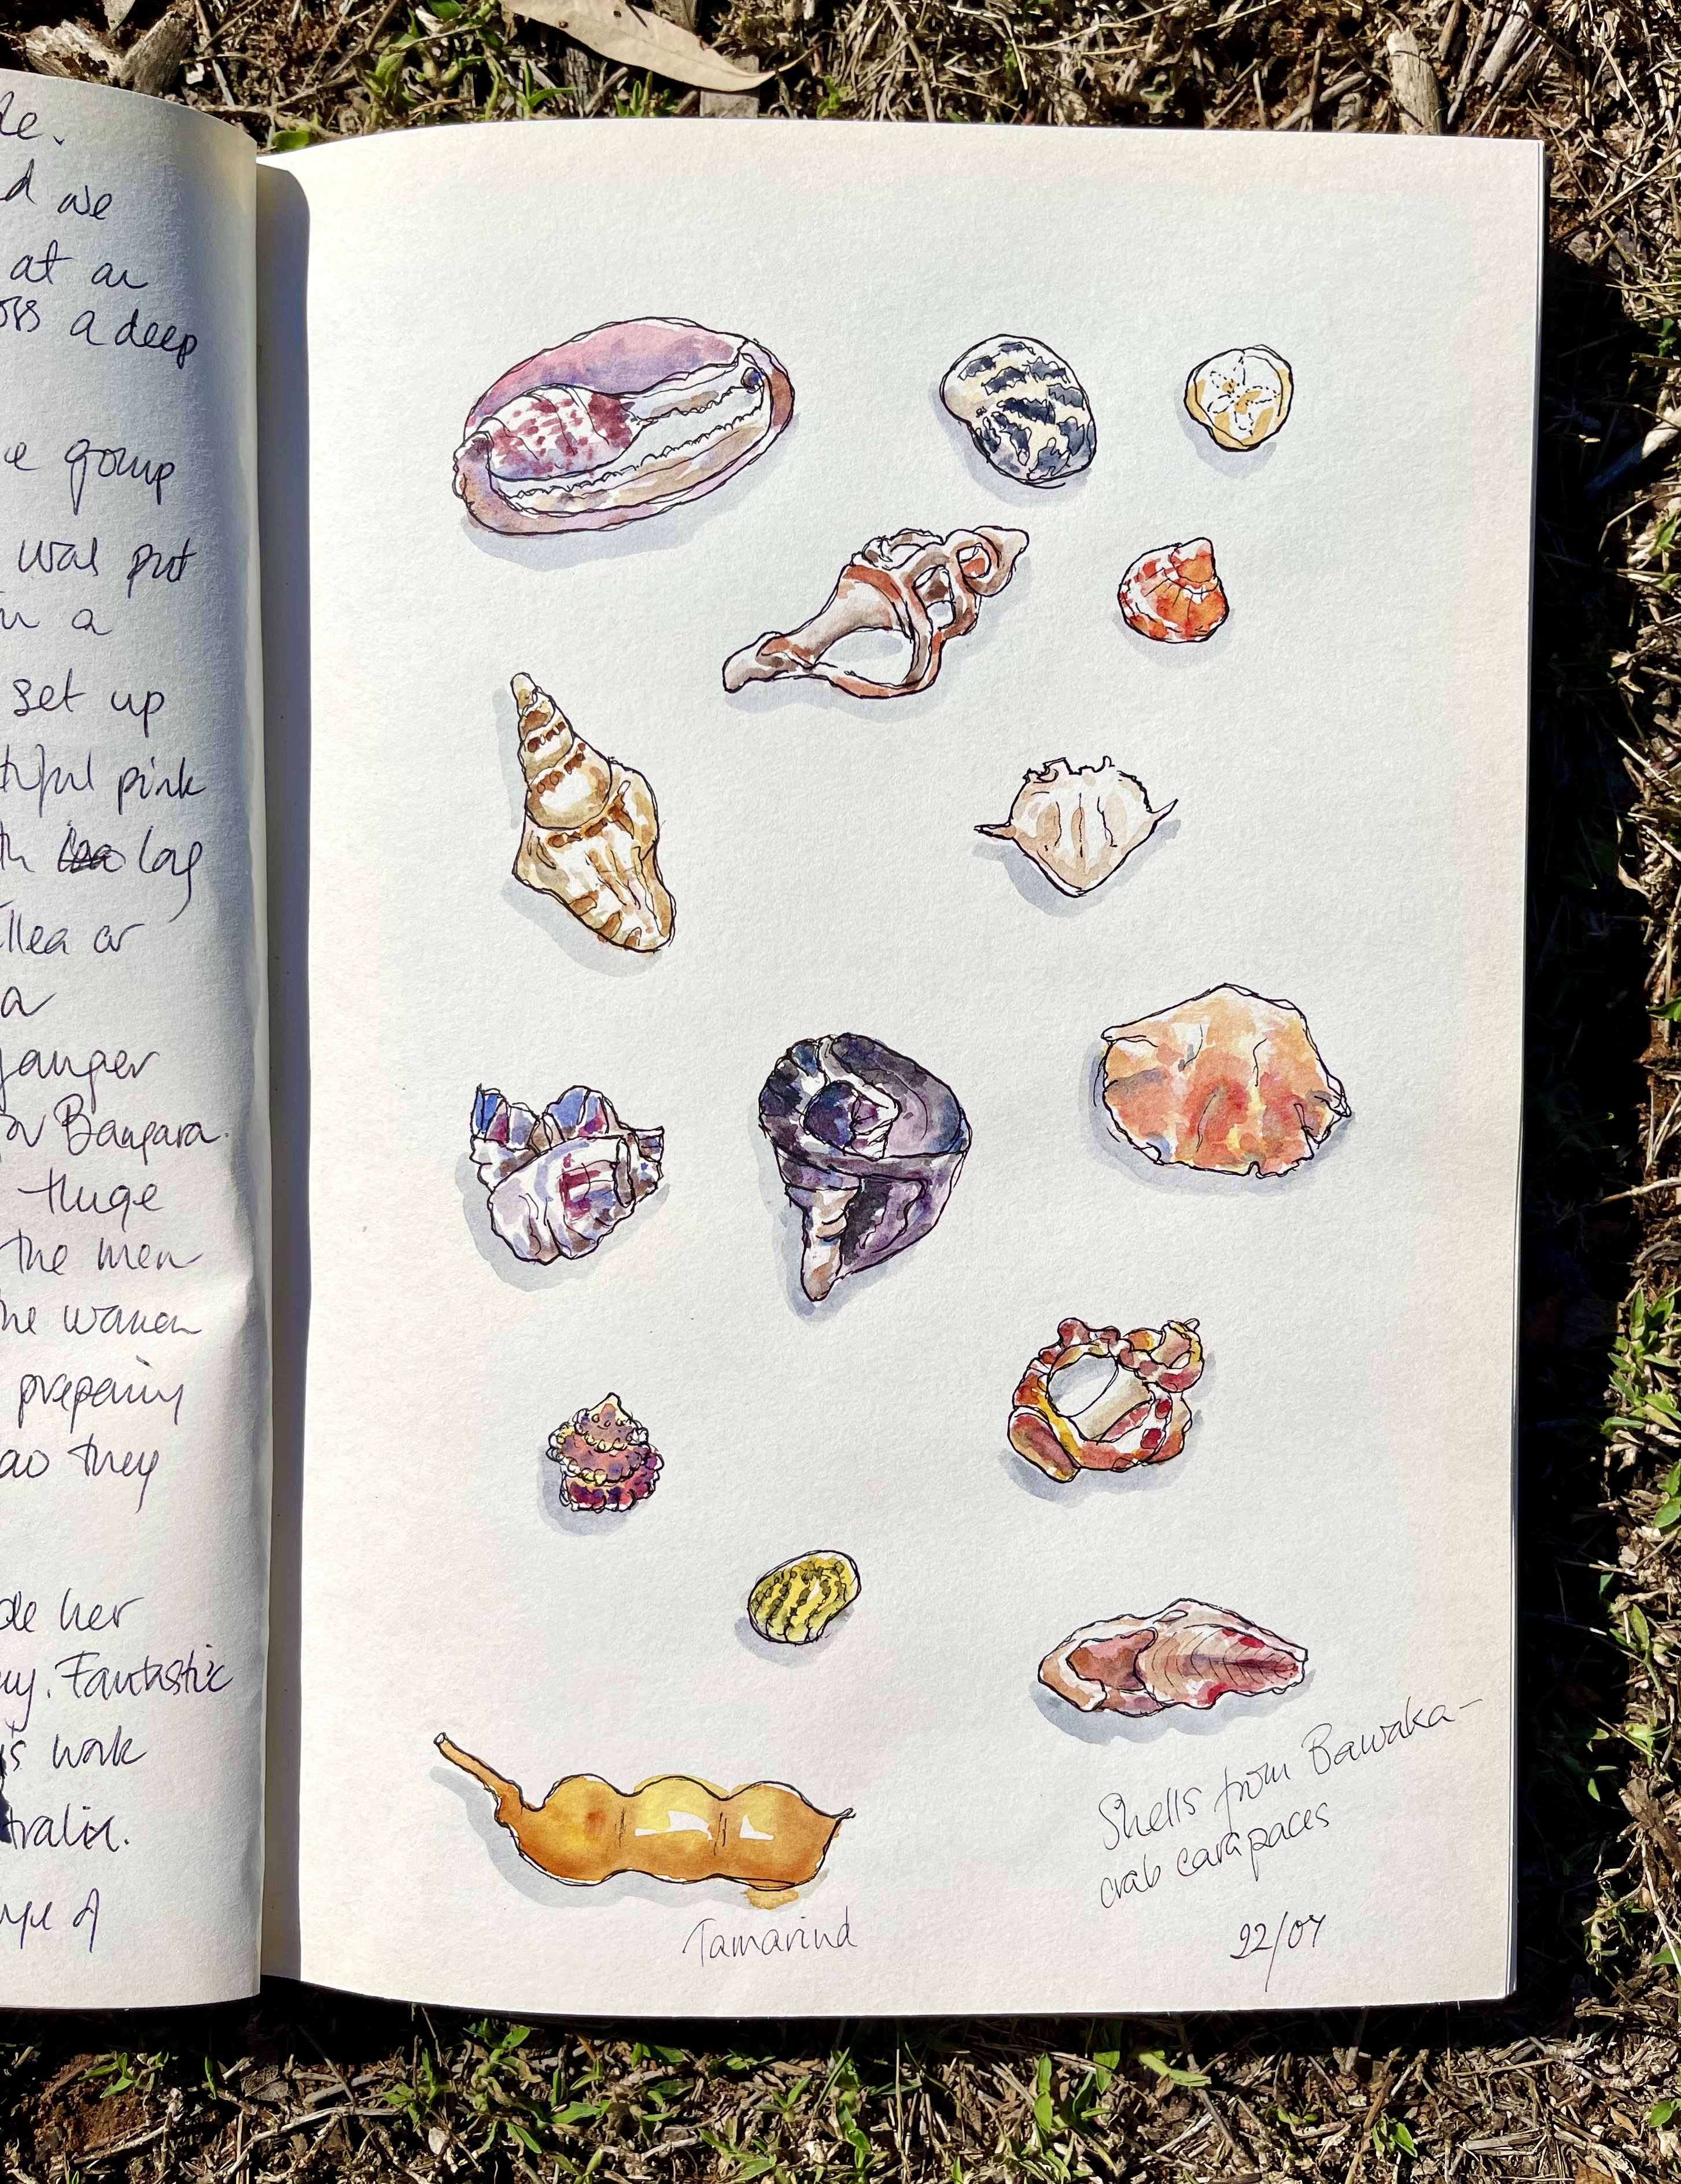 de.
d we
at an
ors a deep
e group
was put
in a
set up
tiful pink
th log
llea or
a
Ganger
or Bangara.
Huge
the men
he women
preparing
ao they
de her
ny. Fantastic
is work
tralia.
Shells from Bawaka -
crab carapaces
22/07
Tamarind